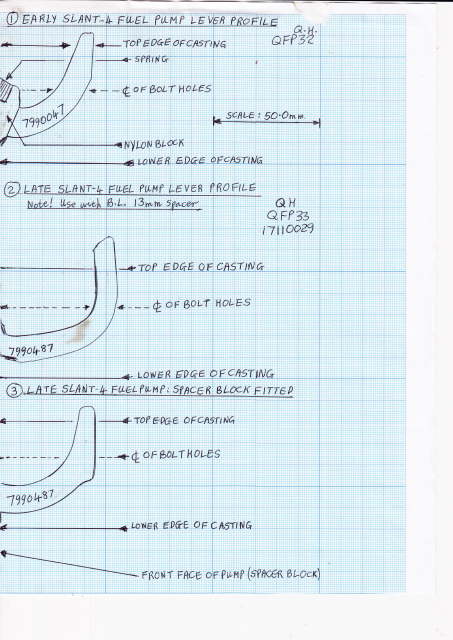 ① EARLY SLANT-4 FUEL PUMP LEVER PROFILE
Q.H.
QFP32
TOP EDGE OF CASTING
SPRING
℄ OF BOLT HOLES
7990047
SCALE: 50.0mm.
NYLON BLOCK
LOWER EDGE OF CASTING
② LATE SLANT-4 FUEL PUMP LEVER PROFILE
Note! Use with B.L. 13mm spacer
QH
QFP33
17110029
TOP EDGE OF CASTING
℄ OF BOLT HOLES
7990487
LOWER EDGE OF CASTING
③ LATE SLANT-4 FUEL PUMP: SPACER BLOCK FITTED
TOP EDGE OF CASTING
℄ OF BOLT HOLES
7990487
LOWER EDGE OF CASTING
FRONT FACE OF PUMP (SPACER BLOCK)